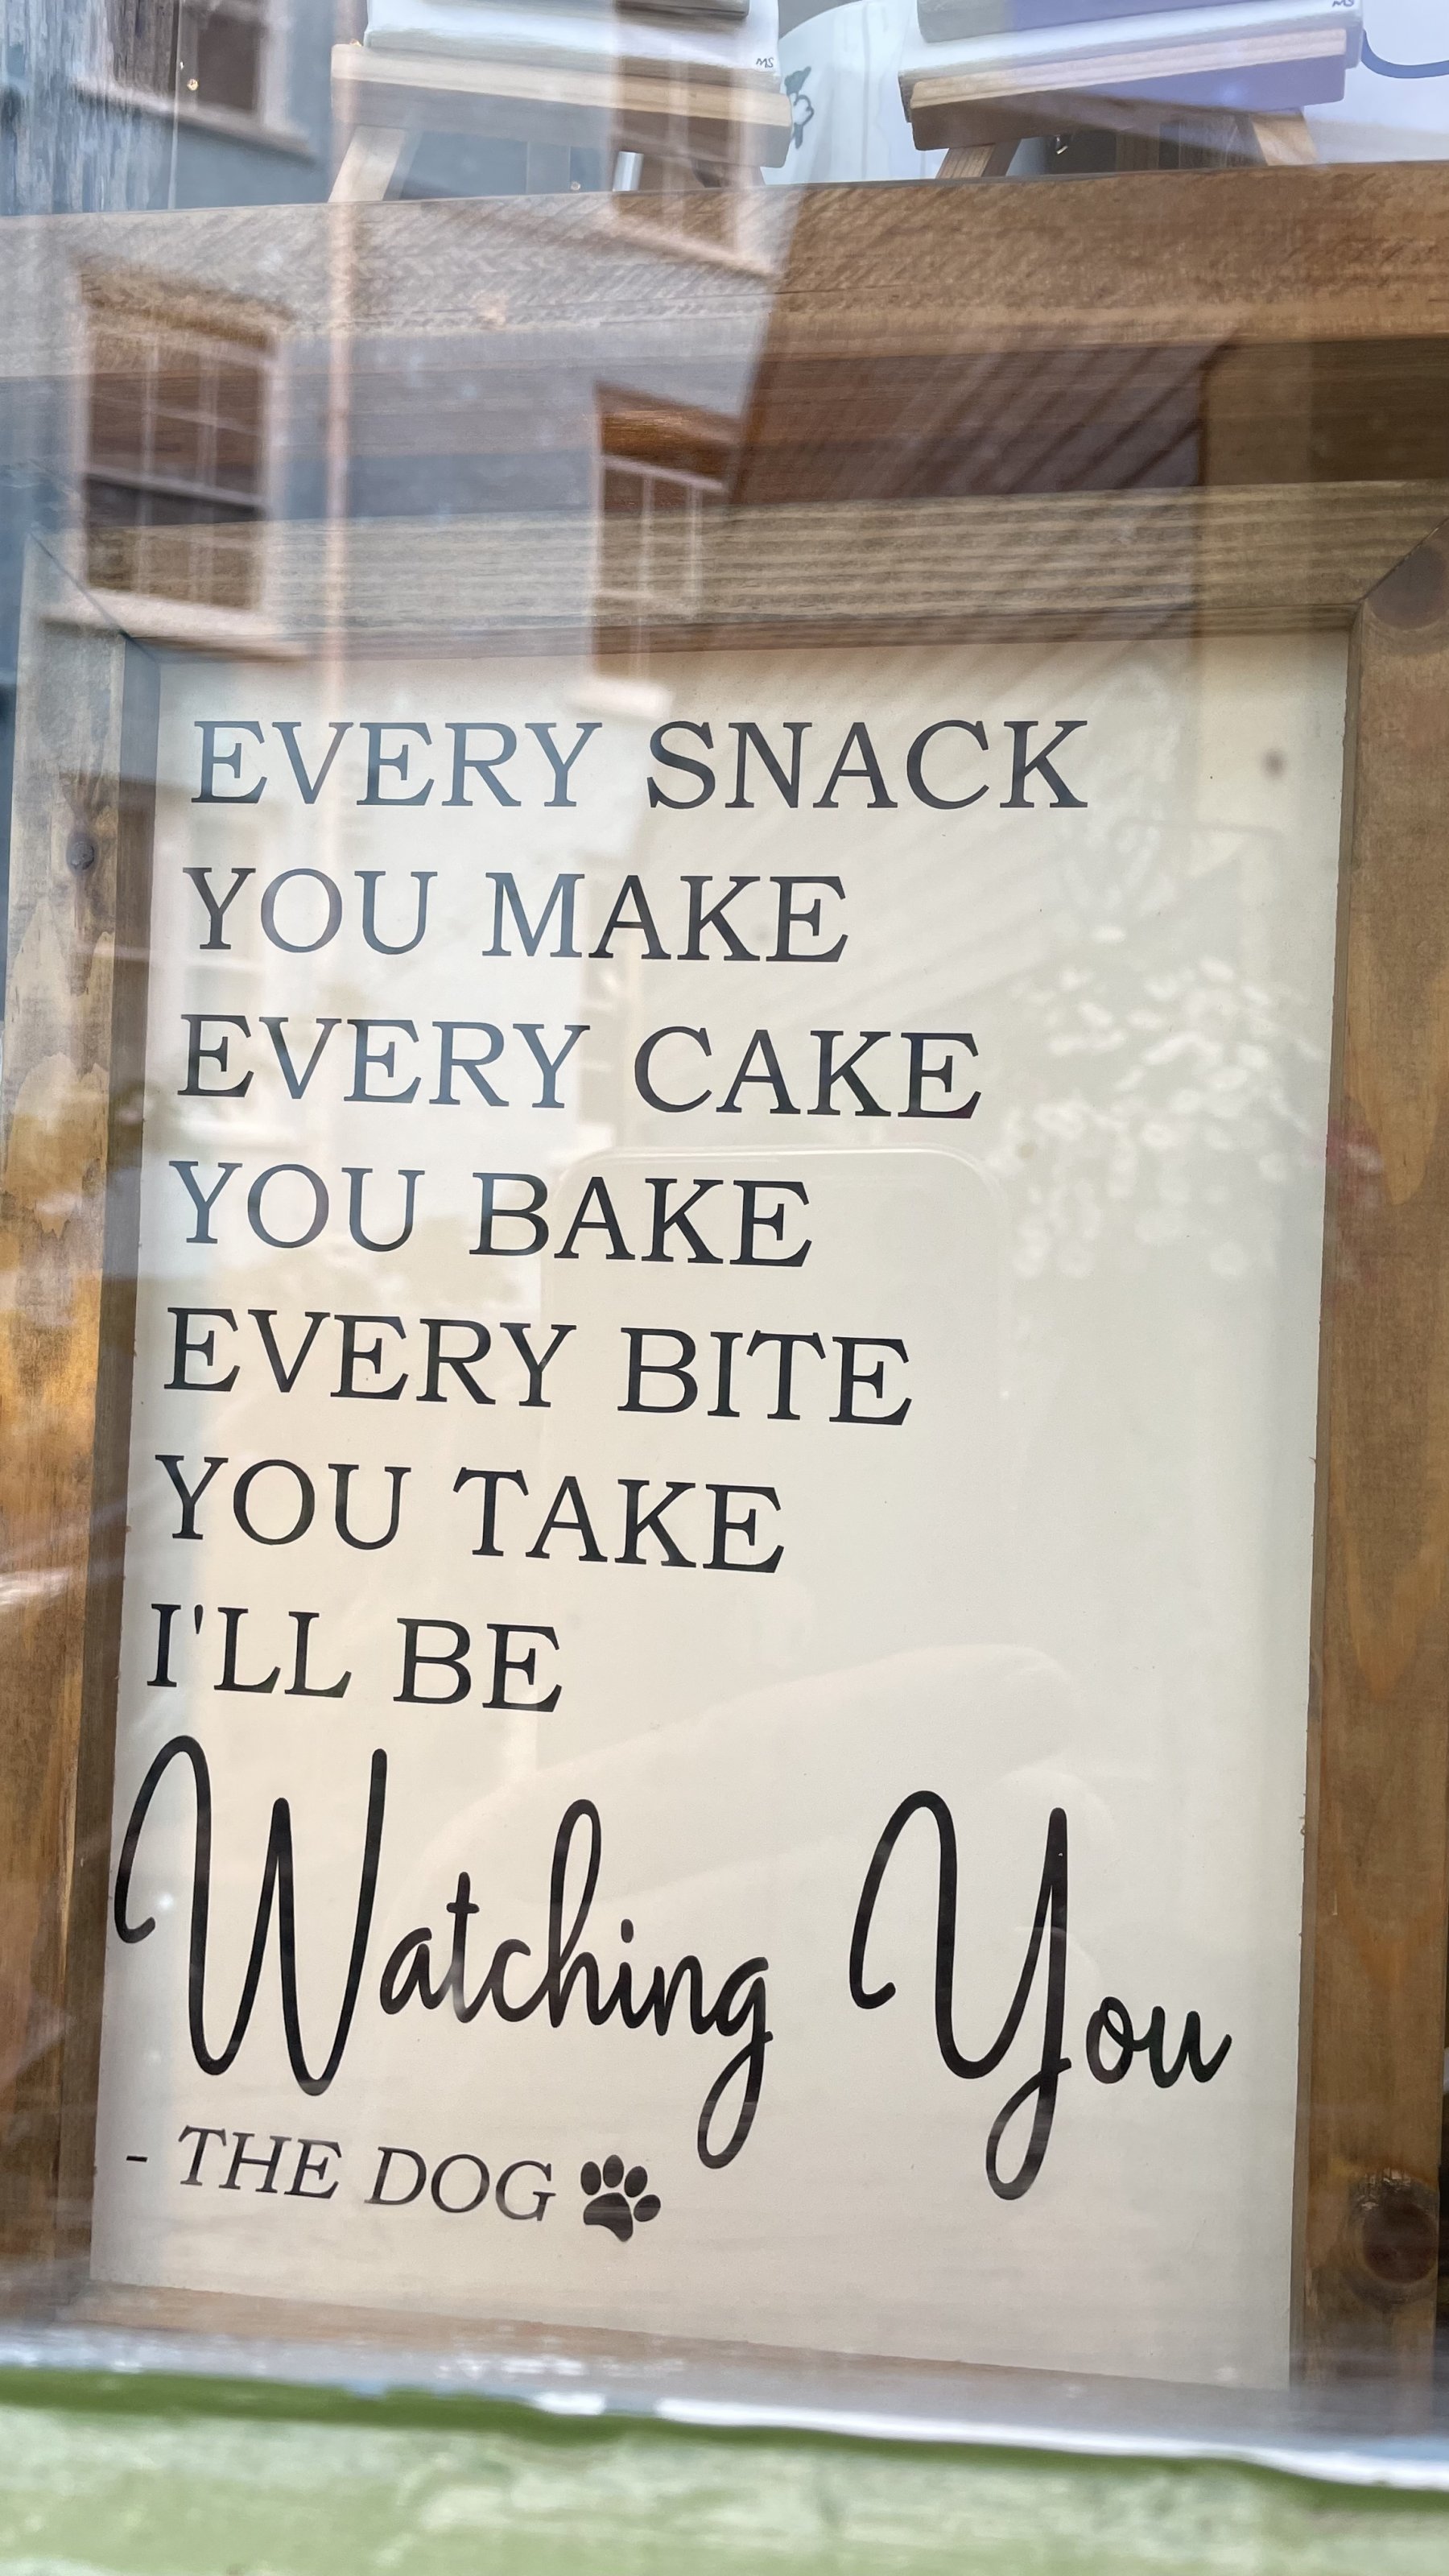 MS
MS
EVERY SNACK
YOU MAKE
EVERY CAKE
YOU BAKE
EVERY BITE
YOU TAKE
I'LL BE
Watching You
- THE DOG